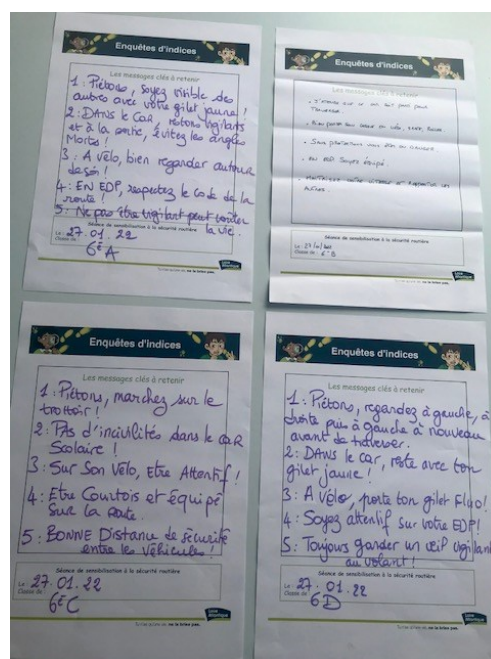 Enquêtes d'indices
Les messages clés à retenir
1 : Piétons, soyez visible des
autres avec votre gilet jaune !
2 : DANS le CAR, restons vigilants
et à la sortie, évitez les angles
Morts !
3 : A vélo, bien regarder autour
de soi !
4 : EN EDP, respectez le code de la
route !
5 : Ne pas être vigilant peut coûter
la vie.
Séance de sensibilisation à la sécurité routière
Le : 27.01.22
Classe de : 6È A
Enquêtes d'indices
Les messages clés à retenir
traverser.
. Bien porter son casque en vélo,
. Sans protections vous êtes en danger.
. EN EDP Soyez équipé.
. Maîtrisez votre vitesse et
autres.
Séance de sensibilisation à la sécurité routière
Le : 27/01/
Classe de : 6°B
Enquêtes d'indices
Les messages clés à retenir
1 : Piétons, marchez sur le
trottoir !
2 : PAS d'incivilités dans le CAR
Scolaire !
3 : Sur Son Vélo, Etre Attentif !
4 : Etre Courtois et équipé
Sur la Route.
5 : BONNE Distance de Sécurité
entre les Véhicules !
Séance de sensibilisation à la sécurité routière
Le : 27.01.22
Classe de : 6È C
Enquêtes d'indices
Les messages clés à retenir
1 : Piétons, regardez à gauche, à
droite puis à gauche à nouveau
avant de traverser.
2 : DANS le car, reste avec ton
gilet jaune !
3 : A vélo, porte ton gilet Fluo !
4 : Soyez attentif sur votre EDP !
5 : Toujours garder un œil vigilant
au volant !
Séance de sensibilisation à la sécurité routière
Le : 27.01.22
Classe de : 6D